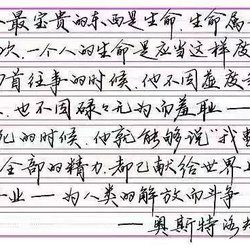 最宝贵的东西是生命.生命属
次.一个人的生命是应当这样度
首往事的时候,他不因虚度
也不因碌々无为而羞耻——
死的时候,他就能够说"我
全部的精力.都已献给世界
业——为人类的解放而斗争
——奥斯特洛